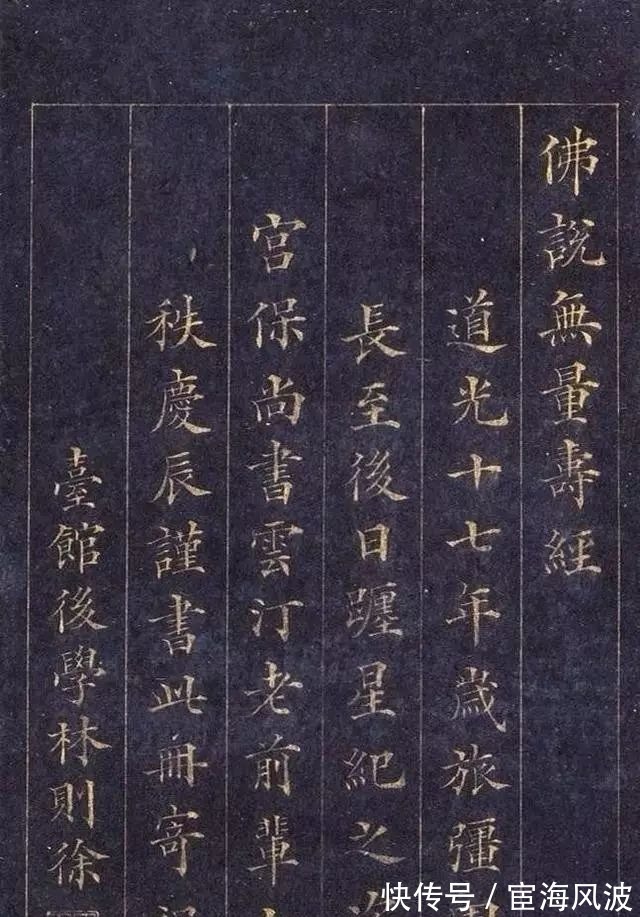 佛説無量壽經
道光十七年歲旅彊
長至後日躔星紀之
宮保尚書雲汀老前輩
秩慶辰謹書此冊寄
臺館後學林則徐
快传号/宦海风波